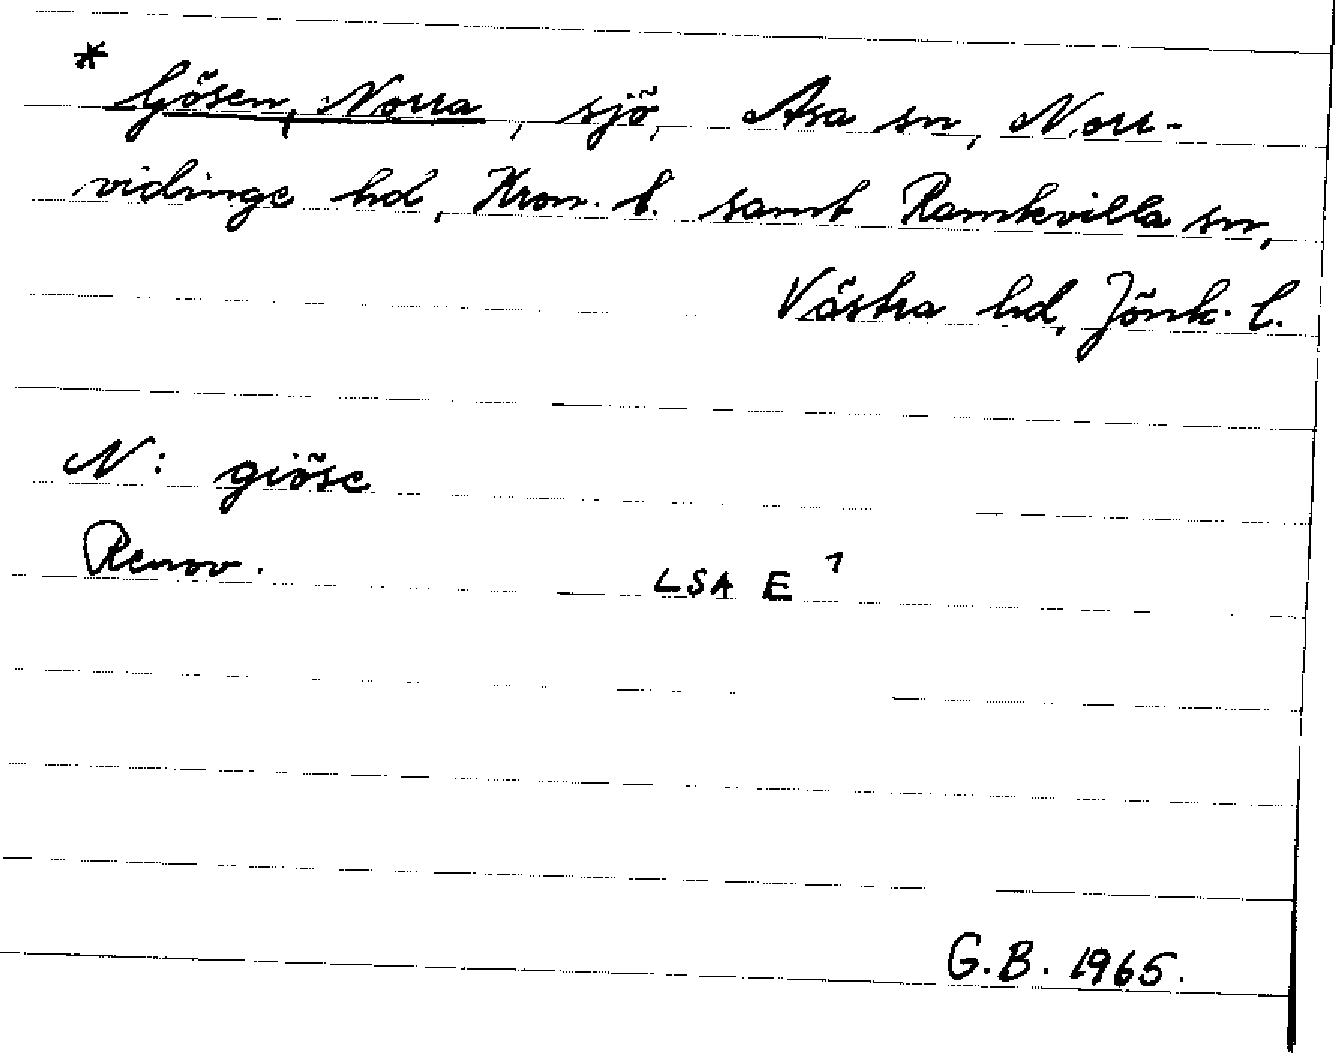 *
Gösen, Norra, sjö, Asa sn, Norr-
vidinge hd, Kron. l. samt Ramkvilla sn,
Västra hd, Jönk. l.
N: giöse
Renov. LSA E 1
G.B. 1965.